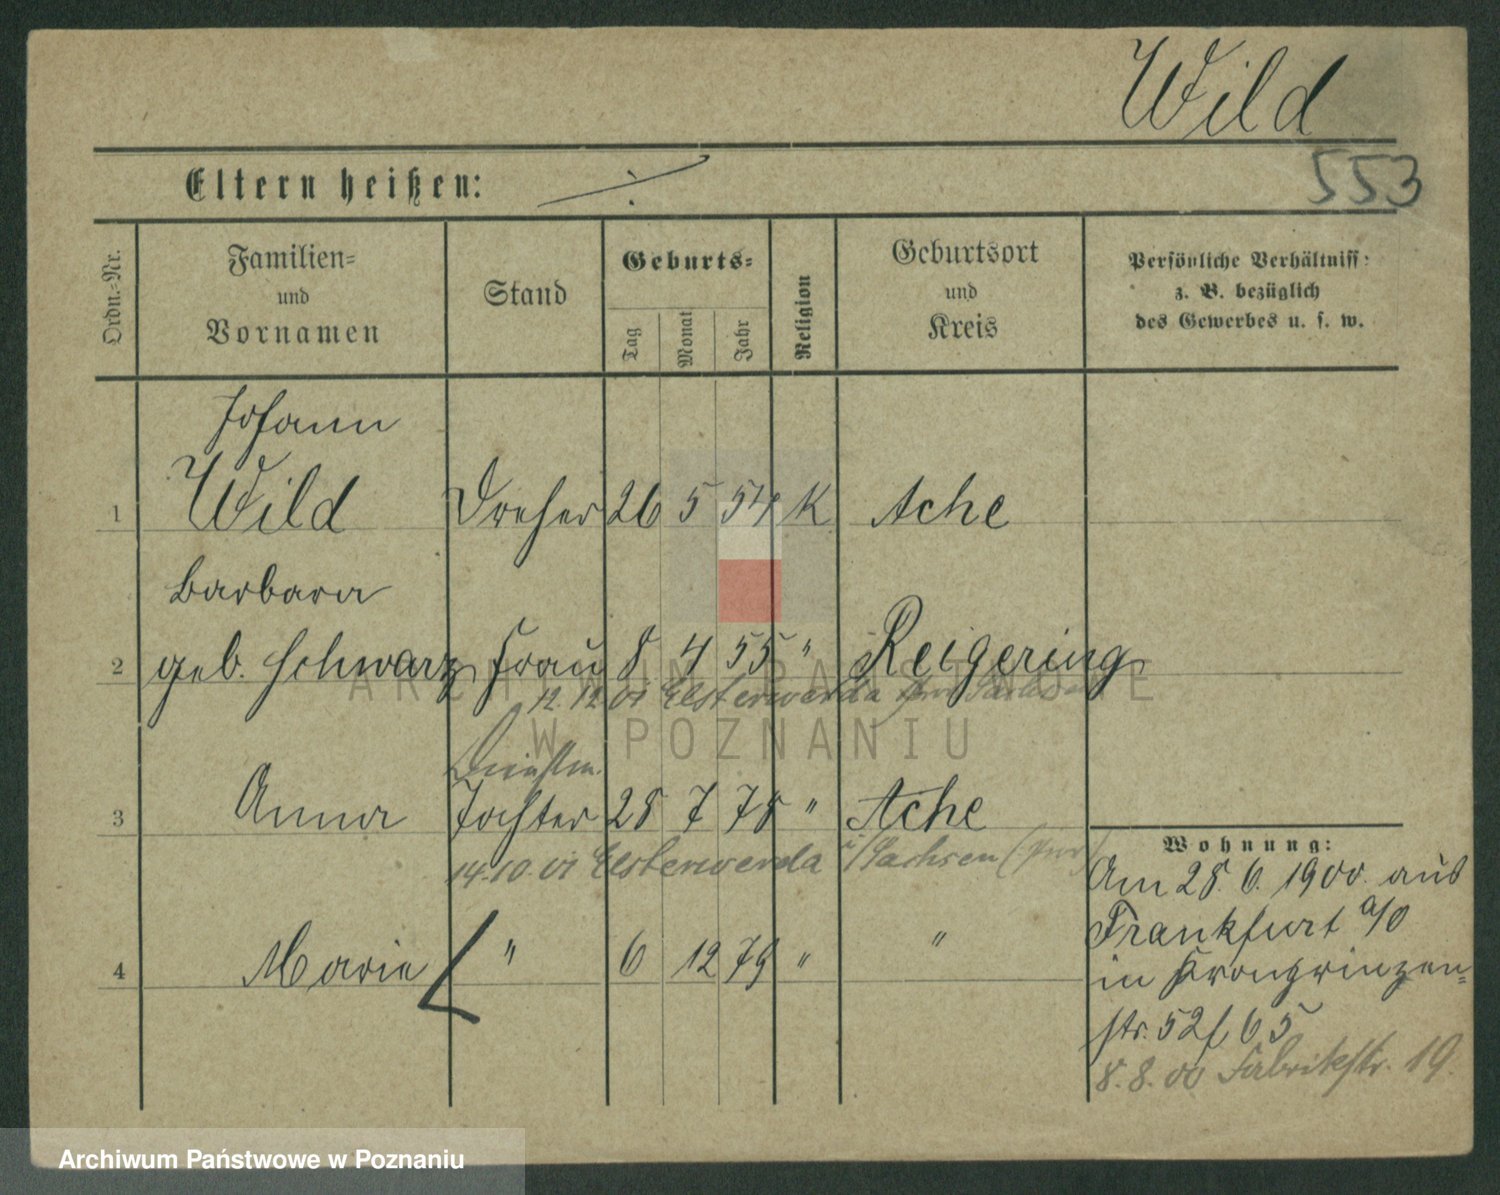 Wild
553
Eltern heißen: ·/·
Ordn.-Nr.
Familien-
und
Vornamen
Stand
Geburts-
Tag
Monat
Jahr
Religion
Geburtsort
und
Kreis
Persönliche Verhältniss:
z. B. bezüglich
des Gewerbes u. s. w.
Johann
1 Wild Dreher 26 5 54 K Ache
Barbara
2 geb. Schwarz Frau 8 4 55 " Reigering
12.12.01 Elsterwerda Prov Sachsen
3 Anna Tochter 28 7 78 " Ache
14.10.01 Elsterwerda i/Sachsen (Prov)
4 Marie " 6 12 79 " "
Wohnung:
Am 28. 6. 1900. aus
Frankfurt a/O
in Kronprinzen=
str. 52 f 65
8.8.00 Fabrikstr. 19.
ARCHIWUM PAŃSTWOWE
W POZNANIU
Archiwum Państwowe w Poznaniu